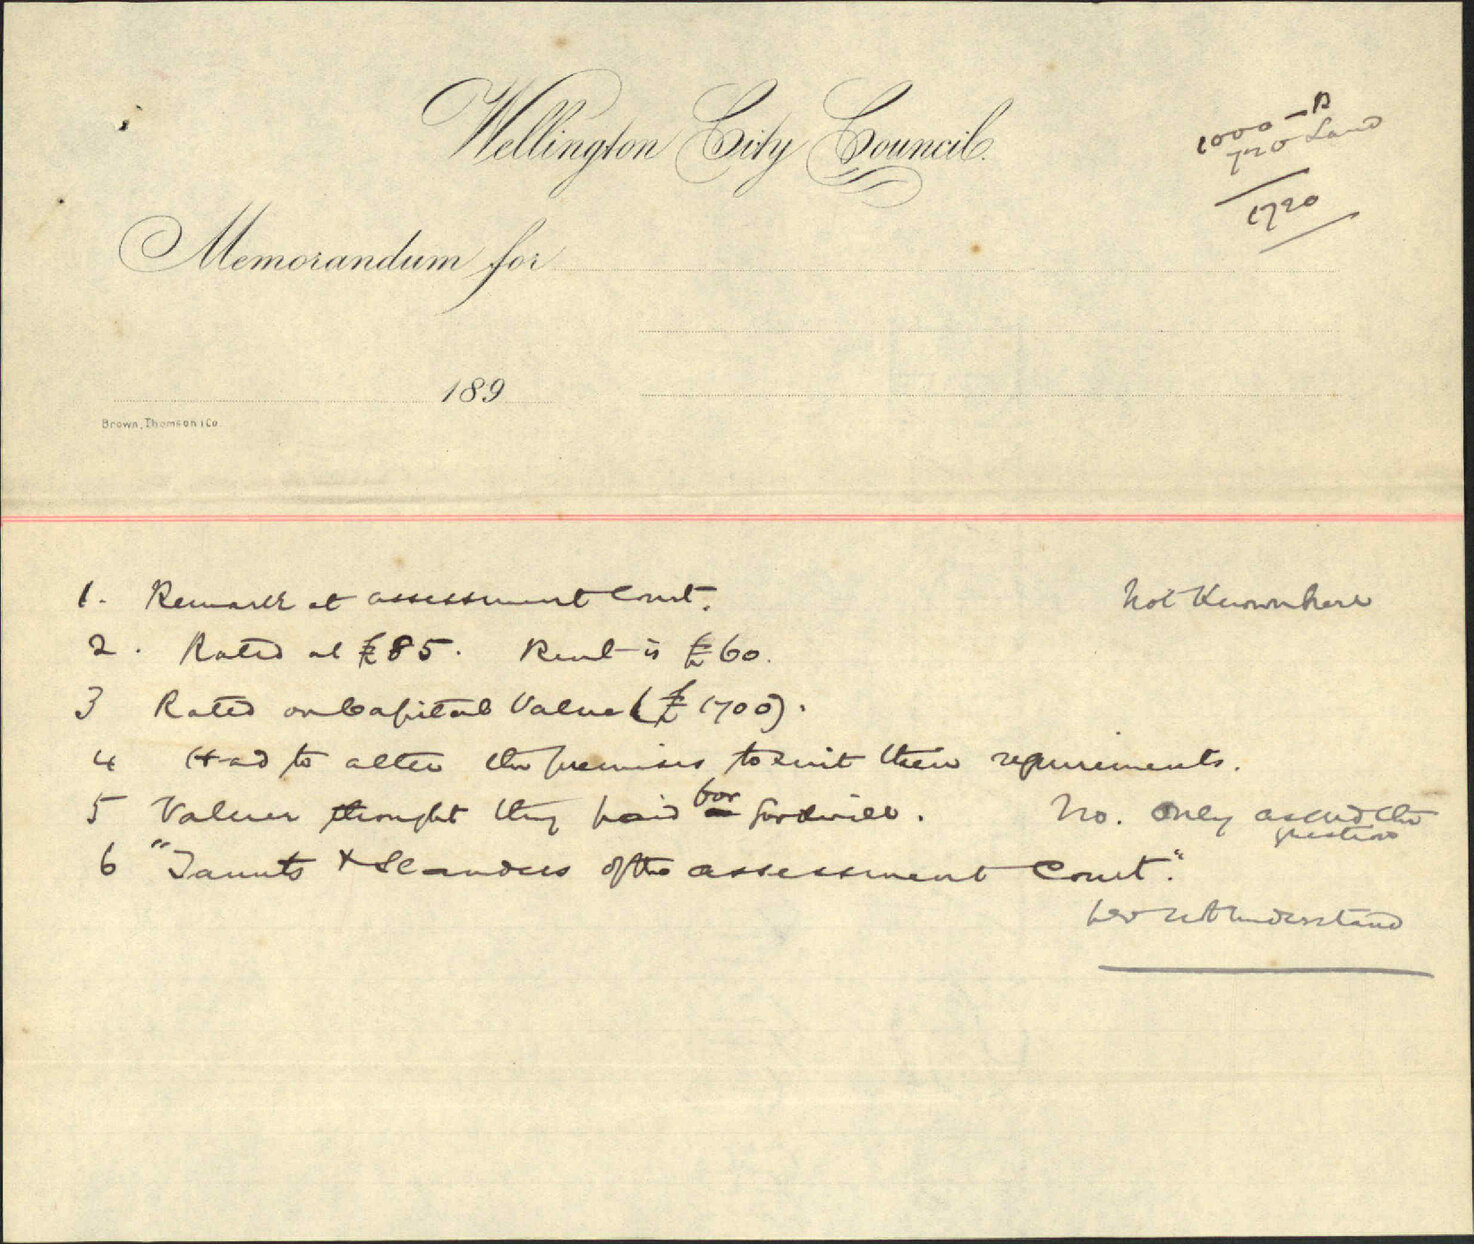 Wellington City Council.
1000 - B
720 Land
1720
Memorandum for
189
Brown, Thomson & Co.
1. Remark at assessment Court. Not Known here
2. Rated at £85. Rent is £60.
3 Rated on Capital Value (£1700).
4 Had to alter the premises to suit their requirements.
5 Valuer thought they paid for goodwill. No. Only asked the
question
6 "Taunts & Slanders of the assessment Court."
not understand